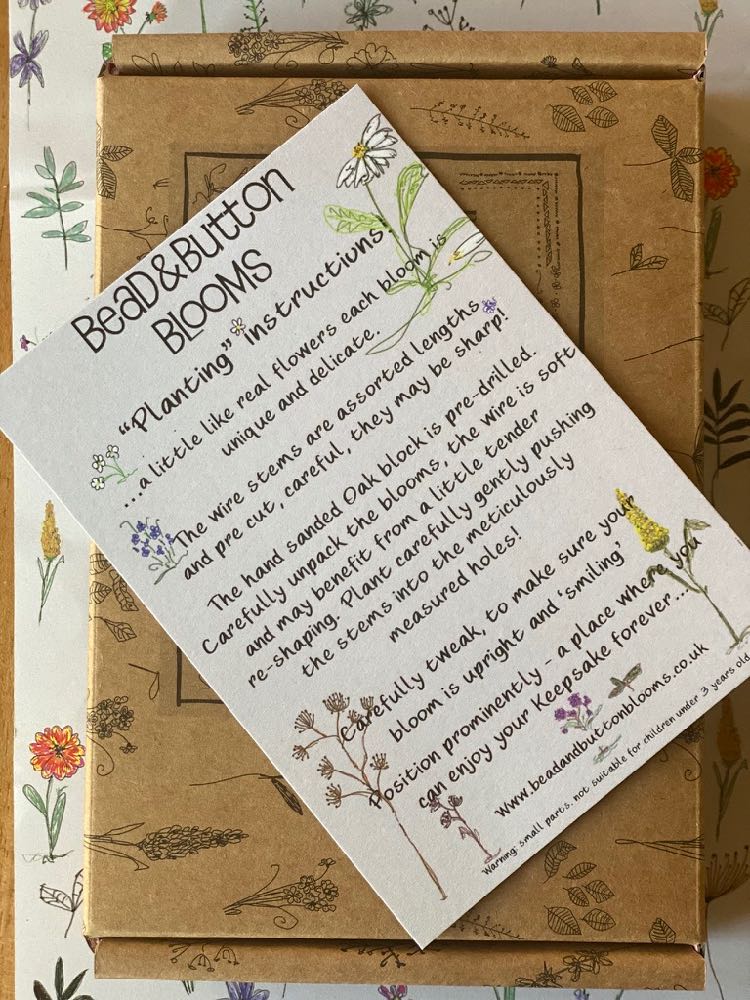 BeaD&BuTTon
BLooMS
"Planting" instructions
...a little like real flowers each bloom is
unique and delicate.
The wire stems are assorted lengths
and pre cut, careful, they may be sharp!
The hand sanded Oak block is pre-drilled.
Carefully unpack the blooms, the wire is soft
and may benefit from a little tender
re-shaping. Plant carefully gently pushing
the stems into the meticulously
measured holes!
Carefully tweak, to make sure your
bloom is upright and 'smiling'
Position prominently - a place where you
can enjoy your Keepsake forever...
www.beadandbuttonblooms.co.uk
Warning: small parts. not suitable for children under 3 years old